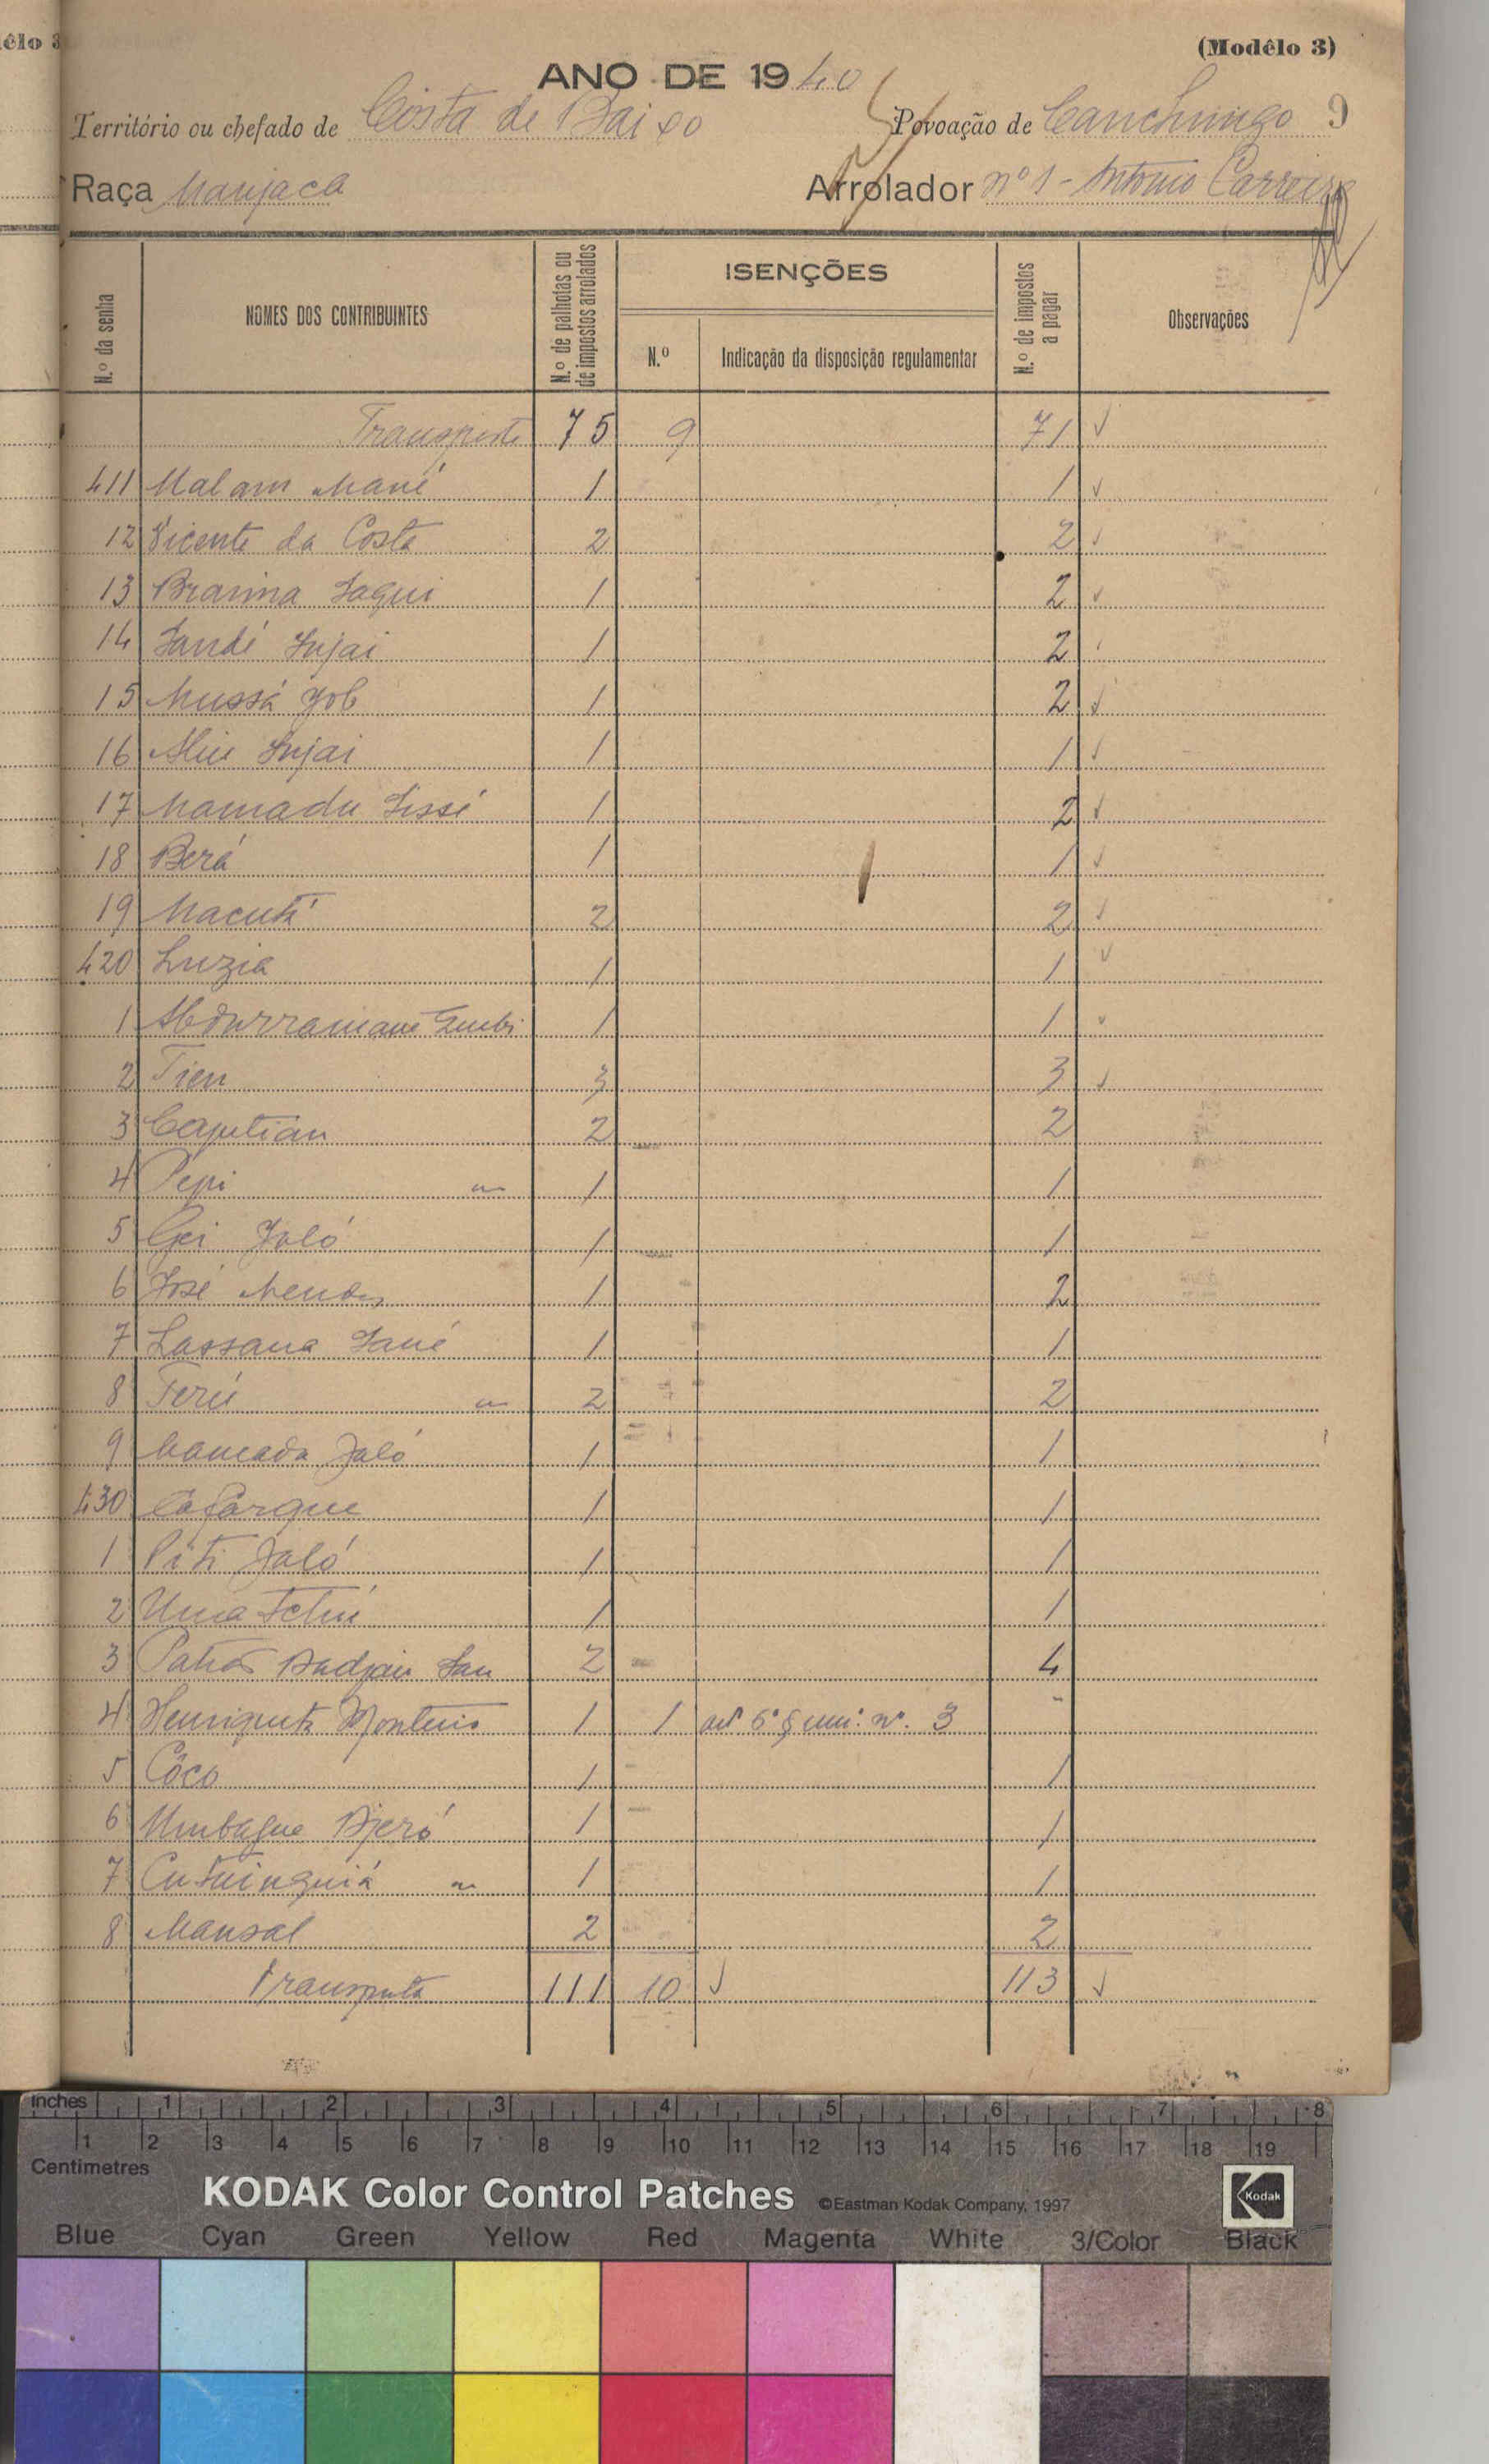 (Modêlo 3)
ANO DE 1940
Território ou chefado de Costa de Baixo Povoação de Canchungo 9
Raça Manjaca Arrolador nº 1 - António Carreira
N.º da senha
NOMES DOS CONTRIBUINTES
N.º de palhotas ou de impostos arrolados
ISENÇÕES
N.º
Indicação da disposição regulamentar
N.º de impostos a pagar
Observações
Transporte 75 9 71 ✓
411 Malam Mané 1 1 ✓
12 Vicente da Costa 2 2 ✓
13 Braima Sagui 1 2 ✓
14 Sandé Injai 1 2
15 Mussá Job 1 2 ✓
16 Aliu Injai 1 1 ✓
17 Mamadu Sissé 1 2 ✓
18 Berá 1 1 ✓
19 Macuti 2 2 ✓
420 Luzia 1 1 ✓
1 Abdurramane 1 1 ✓
2 Tien 3 3 ✓
3 Caputian 2 2
4 Pepi " 1 1
5 Gei Jaló 1 1
6 José Mendes 1 2
7 Lassana Sané 1 1
8 Teru " 2 2
9 Mamadu Jaló 1 1
430 Cafarque 1 1
1 Piti Jaló 1 1
2 Uma 1 1
3 2 4
4 Henriqueta Monteiro 1 1 art 6º § uni. nº. 3 "
5 Côco 1 1
6 Umbague Djeró 1 1
7 " 1 1
8 Mansal 2 2
Transporte 111 10 ✓ 113 ✓
Inches 1 2 3 4 5 6 7 8
1 2 3 4 5 6 7 8 9 10 11 12 13 14 15 16 17 18 19
Centimetres
KODAK Color Control Patches ©Eastman Kodak Company, 1997 Kodak
Blue Cyan Green Yellow Red Magenta White 3/Color Black